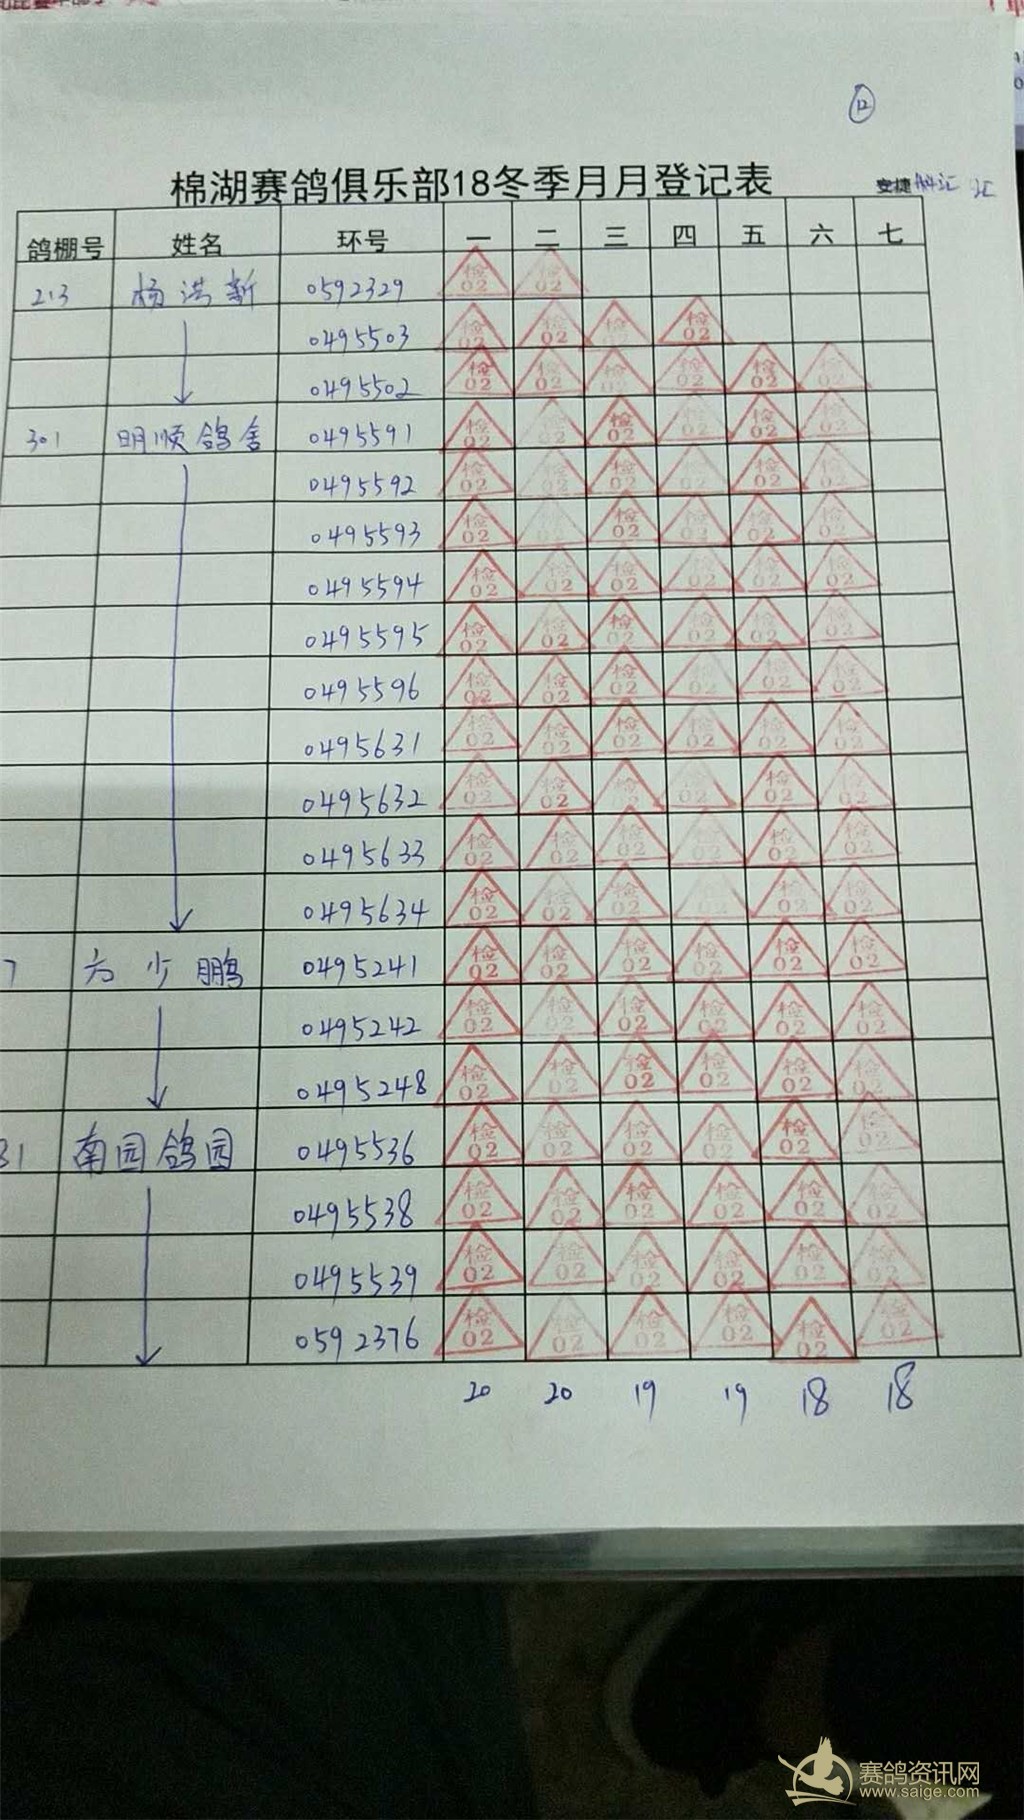 12
棉湖赛鸽俱乐部18冬季月月登记表
安捷
鸽棚号 姓名 环号 一 二 三 四 五 六 七
213 杨洪新 0592329 检02 检02
0495503 检02 检02 检 检02
0495502 检02 检02 检02 检02 检02 检02
301 明顺鸽舍 0495591 检02 检02 检02 检02 检02 检02
0495592 检02 检02 检02 检02 检02 检02
0495593 检02 检02 检02 检02 检02 检02
0495594 检02 检02 检02 检02 检02 检02
0495595 检02 检02 检02 检02 检02 检02
0495596 检02 检02 检02 检02 检02 检02
0495631 检02 检02 检02 检02 检02 检02
0495632 检02 检02 检02 检02 检02 检02
0495633 检02 检02 检02 检02 检02 检02
0495634 检02 检02 检02 检02 检02
7 方少鹏 0495241 检02 检02 检02 检02 检02 检02
0495242 检02 检02 检02 检02 检02 检02
0495248 检02 检02 检02 检02 检02 检02
31 南园鸽园 0495536 检02 检02 检02 检02 检02 检02
0495538 检02 检02 检02 检02 检02 检02
0495539 检02 检02 检02 检02 检02 检02
0592376 检02 检02 检02 检02 检02 检02
20 20 19 19 18 18
赛鸽资讯网
www.saige.com